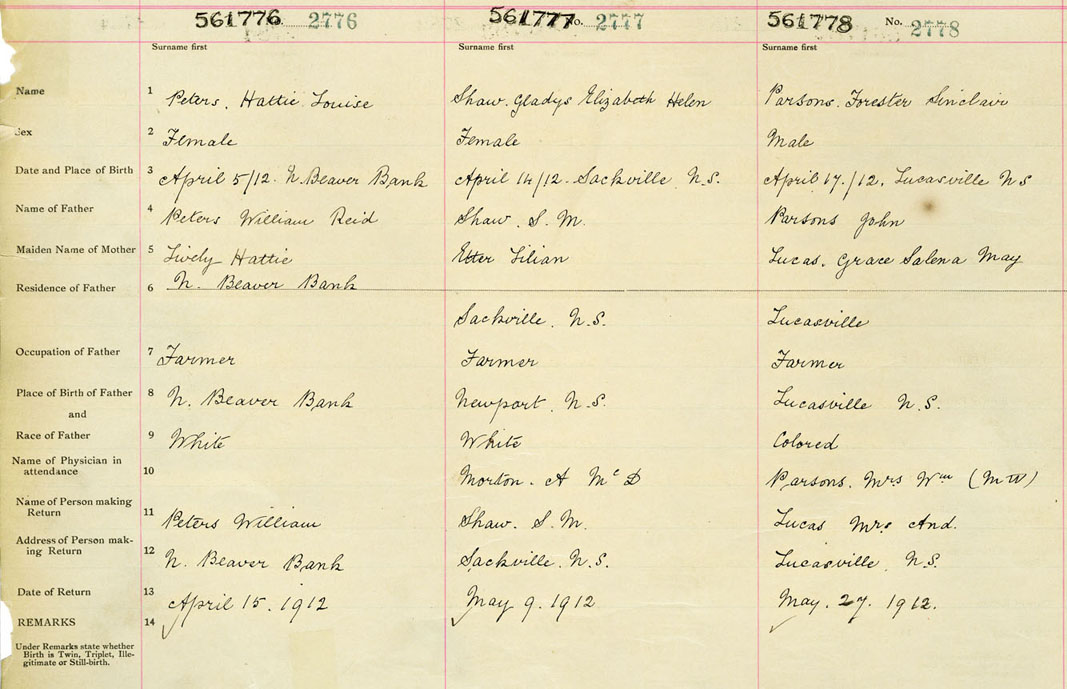 561776 No. 2776 561777 No. 2777 561778 No. 2778
Surname first Surname first Surname first
Name 1 Peters. Hattie Louise Shaw. Gladys Elizabeth Helen Parsons. Forester Sinclair
Sex 2 Female Female Male
Date and Place of Birth 3 April 5/12. N. Beaver Bank April 14/12. Sackville N.S. April 17./12. Lucasville N S
Name of Father 4 Peters William Reid Shaw. S. M. Parsons John
Maiden Name of Mother 5 Lively Hattie Etter Lilian Lucas. Grace Salena May
Residence of Father 6 N. Beaver Bank
Sackville. N.S. Lucasville
Occupation of Father 7 Farmer Farmer Farmer
Place of Birth of Father 8 N. Beaver Bank Newport. N.S. Lucasville N.S.
and
Race of Father 9 White White Colored
Name of Physician in
attendance 10 Morton. A McD Parsons. Mrs Wm (M W)
Name of Person making
Return 11 Peters William Shaw. S. M. Lucas Mrs And.
Address of Person mak-
ing Return 12 N. Beaver Bank Sackville. N.S. Lucasville. N.S.
Date of Return 13 April 15. 1912 May 9. 1912 May. 27. 1912.
REMARKS 14
Under Remarks state whether
Birth is Twin, Triplet, Ille-
gitimate or Still-birth.